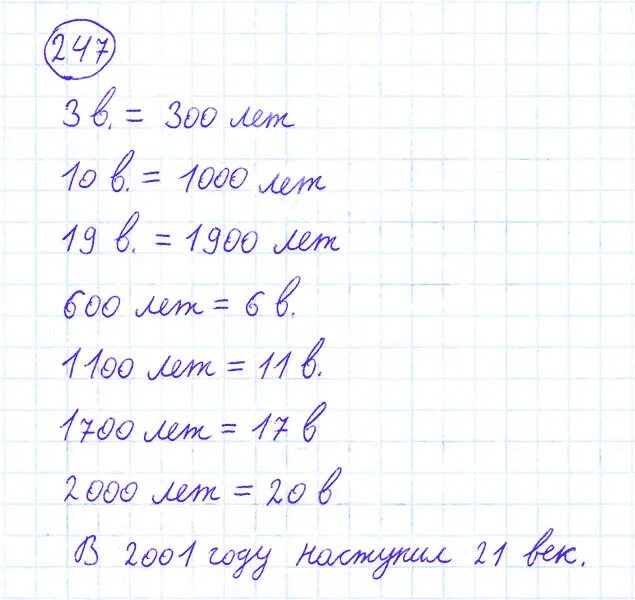 247
3 в. = 300 лет
10 в. = 1000 лет
19 в. = 1900 лет
600 лет = 6 в.
1100 лет = 11 в.
1700 лет = 17 в
2000 лет = 20 в
В 2001 году наступил 21 век.